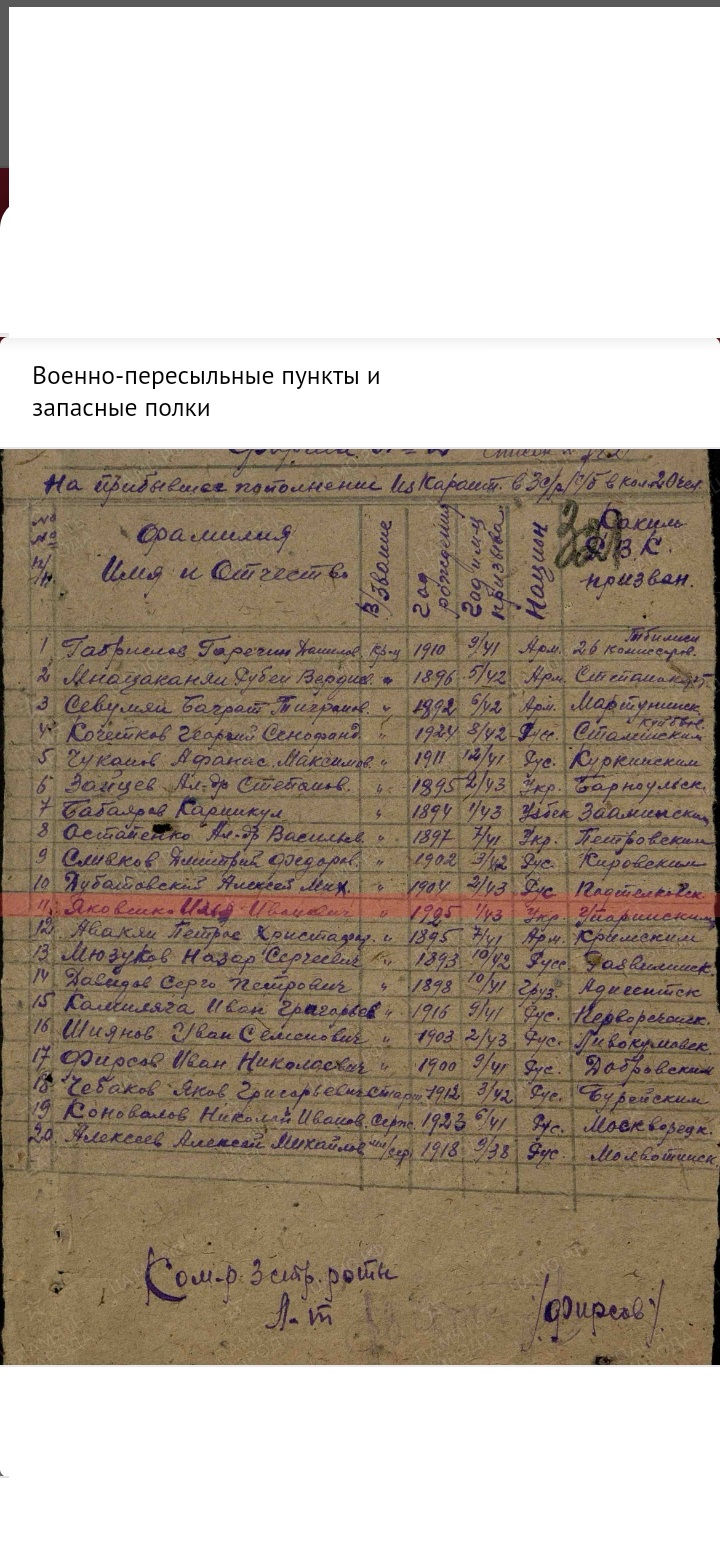 Военно-пересыльные пункты и
запасные полки
На прибывшее пополнение из Карант. в 3 с/р кол. 20 чел
№№ п/п Фамилия Имя и Отчество В/звание Год рождения Год и м-ц призыва Национ Каким Р.В.К. призван.
1 Гаврилов Гарегин Данилов. кр-ц 1910 9/41 Арм. Тбилиси 26 комиссаров.
2 Мнацаканян Рубен " 1896 5/42 Арм. Степанакерт
3 Севумян Баграт Тигранов. " 1892 6/42 Арм. Мартунинск
4 Кочетков Георгий " 1924 8/42 Русс. Сталинским
5 Чуканов Афанас. Максимов. " 1911 12/41 Рус. Куркинским
6 Зайцев Ал-др Степанов. " 1895 2/43 Укр. Барноульск.
7 Бабаяров " 1894 1/43 Узбек Зааминским
8 Остапенко Ал-др Васильев. " 1897 7/41 Укр. Петровским
9 Сливков Дмитрий Федоров. " 1902 3/42 Рус. Кировским
10 Дубатовский Алексей Мих. " 1904 2/43 Рус
11 Яковенко Илья Иванович " 1925 1/43 Укр.
12 Авакян Петрос Христафор. " 1895 7/41 Арм. Кримским
13 Мюзуков Назар Сергеевич " 1893 10/42 Русс
14 Давидов Серго Петрович " 1898 10/41 Груз.
15 Камиляга Иван Григорьев " 1916 9/41 Рус.
16 Шиянов Иван Семенович " 1903 2/43 Рус. Левокумовск.
17 Фирсов Иван Николаевич " 1900 9/41 Рус. Добровским
18 Чебаков Яков Григорьевич 1912 3/42 Рус. Бурейским
19 Коновалов Николай Иванов. серж. 1923 6/41 Рус. Москворецк.
20 Алексеев Алексей Михайлов мл/сер. 1918 9/38 Рус. Молвотинск
Ком-р. 3 стр. роты
Л-т /Фирсов/